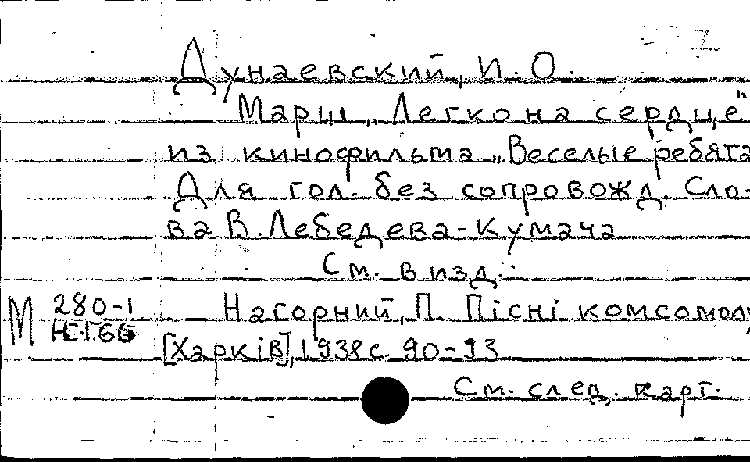 Дунаевский, И. О.
Марш „Легко на сердце"
из кинофильма „Веселые ребята
Для гол. без сопровожд. Сло-
ва В. Лебедева-Кумача
См. в изд.:
М 280-1 Нагорний, П. Пісні комсомолу
[Харків], 1938 с. 90-93
См. след. карт.